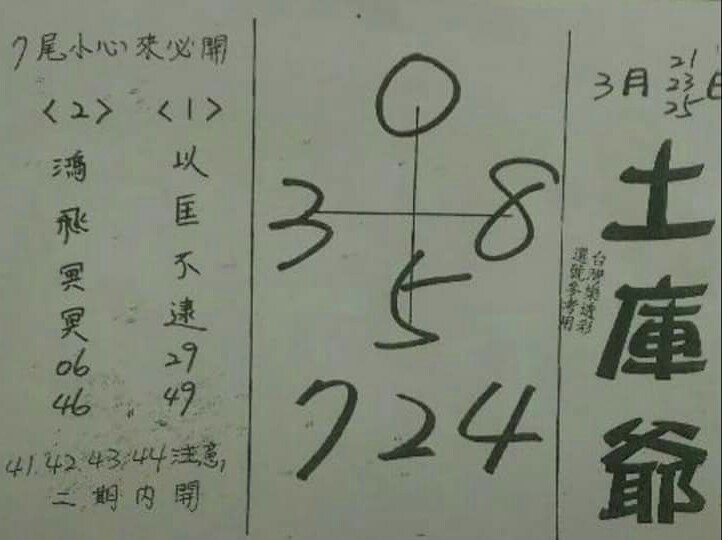 3月 21 23 25 日
土庫爺
台灣樂透彩
選號參考用
0
3 8
5
7 2 4
7尾小心來必開
<1>
以匡不逮
29
49
<2>
鴻飛冥冥
06
46
41.42.43.44注意,
二期內開